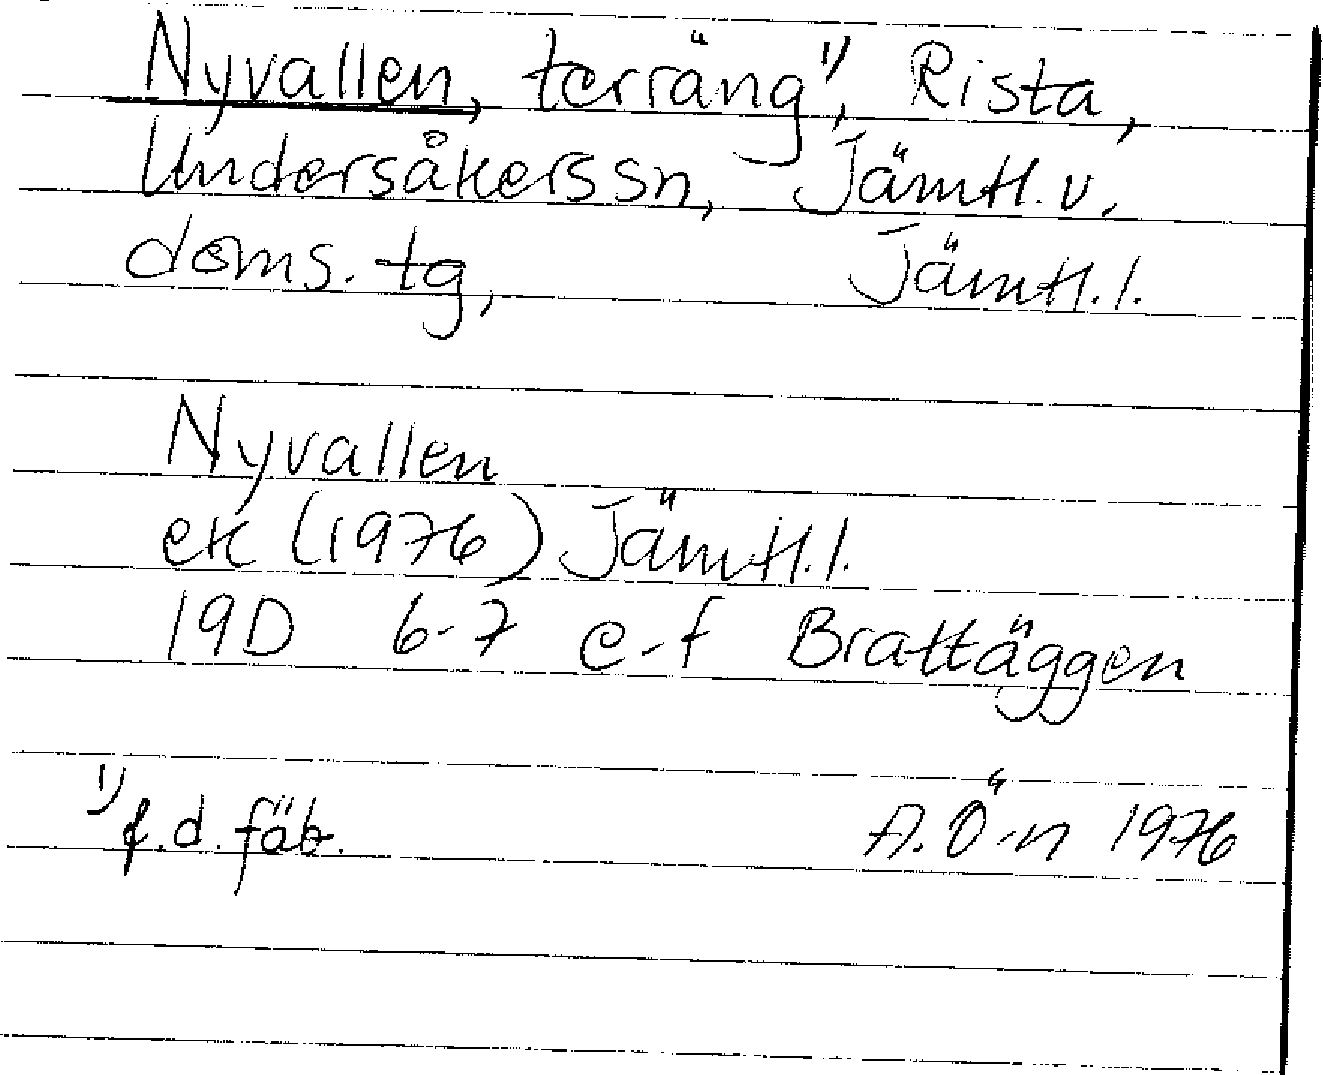 Nyvallen, terräng¹⁾, Rista,
Undersåkers sn, Jämtl. v.
doms. tg, Jämtl. l.
Nyvallen
ek (1976) Jämtl. l.
19D 6-7 e-f Brattäggen
¹⁾ f.d. fäb. A. Ö-n 1976